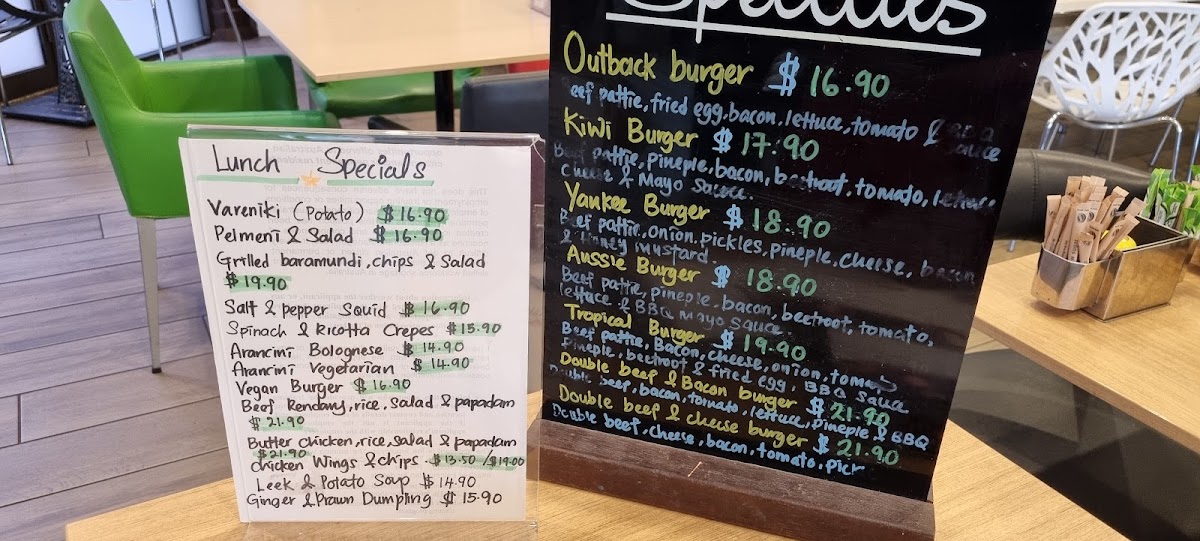 Lunch Specials
Vareniki (Potato) $16.90
Pelmeni & Salad $16.90
Grilled baramundi, chips & Salad
$19.90
Salt & pepper squid $16.90
Spinach & Ricotta Crepes $15.90
Arancini Bolognese $14.90
Arancini Vegetarian $14.90
Vegan Burger $16.90
Beef Rendang, rice, salad & papadam
$21.90
Butter chicken, rice, salad & papadam
$21.90
chicken Wings & chips $13.50/$19.00
Leek & Potato Soup $14.90
Ginger & Prawn Dumpling $15.90
Outback burger $16.90
Beef pattie, fried egg, bacon, lettuce, tomato & BBQ
sauce
Kiwi Burger $17.90
Beef pattie, pineple, bacon, beetroot, tomato, lettuce
cheese & Mayo sauce.
Yankee Burger $18.90
Beef pattie, onion, pickles, pineple, cheese, bacon
& Honey mustard.
Aussie Burger $18.90
Beef pattie, pineple, bacon, beetroot, tomato,
lettuce & BBQ Mayo sauce
Tropical Burger $19.90
Beef pattie, Bacon, cheese, onion, tomato
Pineple, beetroot & fried egg, BBQ sauce
Double beef & Bacon burger $21.90
Double beef, bacon, tomato, lettuce, pineple & BBQ
Double beef & cheese burger $21.90
Double beef, cheese, bacon, tomato, pick